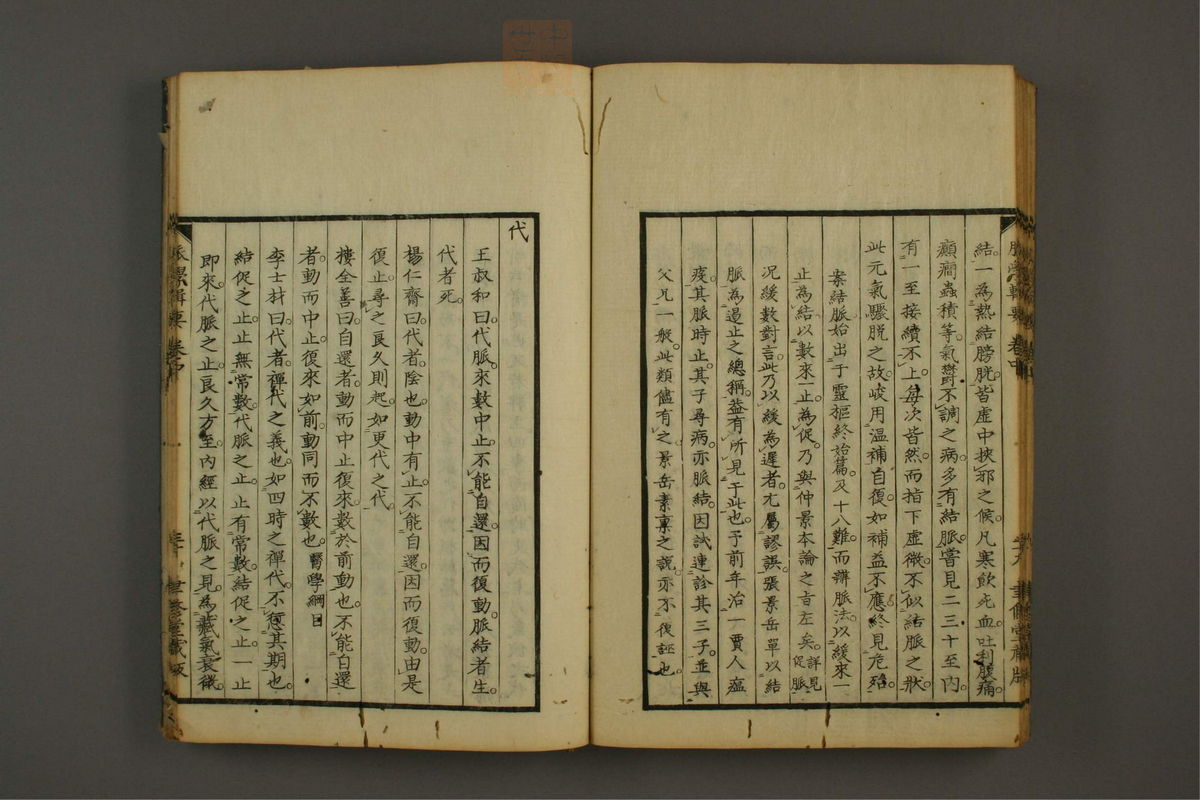 結一為熱結膀胱皆虛中挾邪之候凡寒飲死血吐利腹痛
癲癇蟲積等氣鬱不調之病多有結脈嘗見二三十至內
有一至接續不上每次皆然而指下虛微不似結脈之狀
此元氣驟脫之故峻用温補自復如補益不應終見危殆
案結脈始出于靈樞終始篇及十八難而辨脈法以緩來一
止為結以數來一止為促乃與仲景本論之旨左矣詳見促脈
況緩數對言此乃以緩為遲者尤屬謬誤張景岳單以結
脈為遏止之總稱葢有所見于此也予前年治一賈人瘟
疫其脈時止其子尋病亦脈結因試連診其三子並與
父兄一般此類儘有之景岳素稟之說亦不復誣也
代
王叔和曰代脈來數中止不能自還因而復動脈結者生
代者死
楊仁齋曰代者陰也動中有止不能自還因而復動由是
復止尋之良久則起如更代之代
樓全善曰自還者動而中止復來數於前動也不能自還
者動而中止復來如前動同而不數也醫學綱目
李士材曰代者禪代之義也如四時之禪代不愆其期也
結促之止止無常數代脈之止止有常數結促之止一止
即來代脈之止良久方至內經以代脈之見為藏氣衰微
脈學輯要 卷中
聿修堂藏版